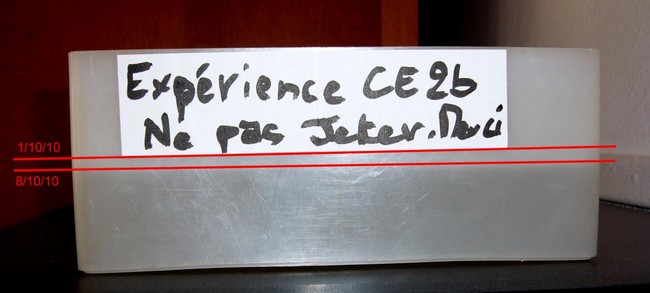 Expérience CE2b
Ne pas Jeter. Merci
1/10/10
8/10/10